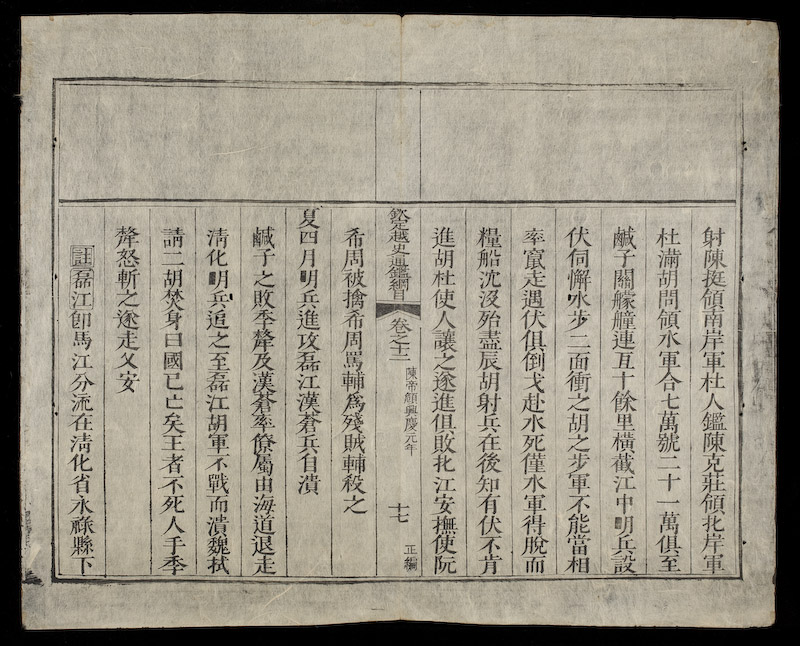 射陳挺領南岸軍杜人鑑陳克莊領北岸軍
杜滿胡問領水軍合七萬號二十一萬俱至
鹹子關艨艟連亙十餘里橫截江中明兵設
伏伺懈水步二面衝之胡之步軍不能當相
率竄走遇伏俱倒戈赴水死僅水軍得脫而
糧船沈沒殆盡辰胡射兵在後知有伏不肯
進胡杜使人讓之遂進俱敗北江安撫使阮
欽定越史通鑑綱目 卷之十二 陳帝顒興慶元年 十七 正編
希周被擒希周罵輔爲殘賊輔殺之
夏四月明兵進攻磊江漢蒼兵自潰
鹹子之敗季犛及漢蒼率僚屬由海道退走
淸化明兵追之至磊江胡軍不戰而潰魏拭
請二胡焚身曰國已亡矣王者不死人手季
犛怒斬之遂走乂安
註磊江卽馬江分流在淸化省永祿縣下